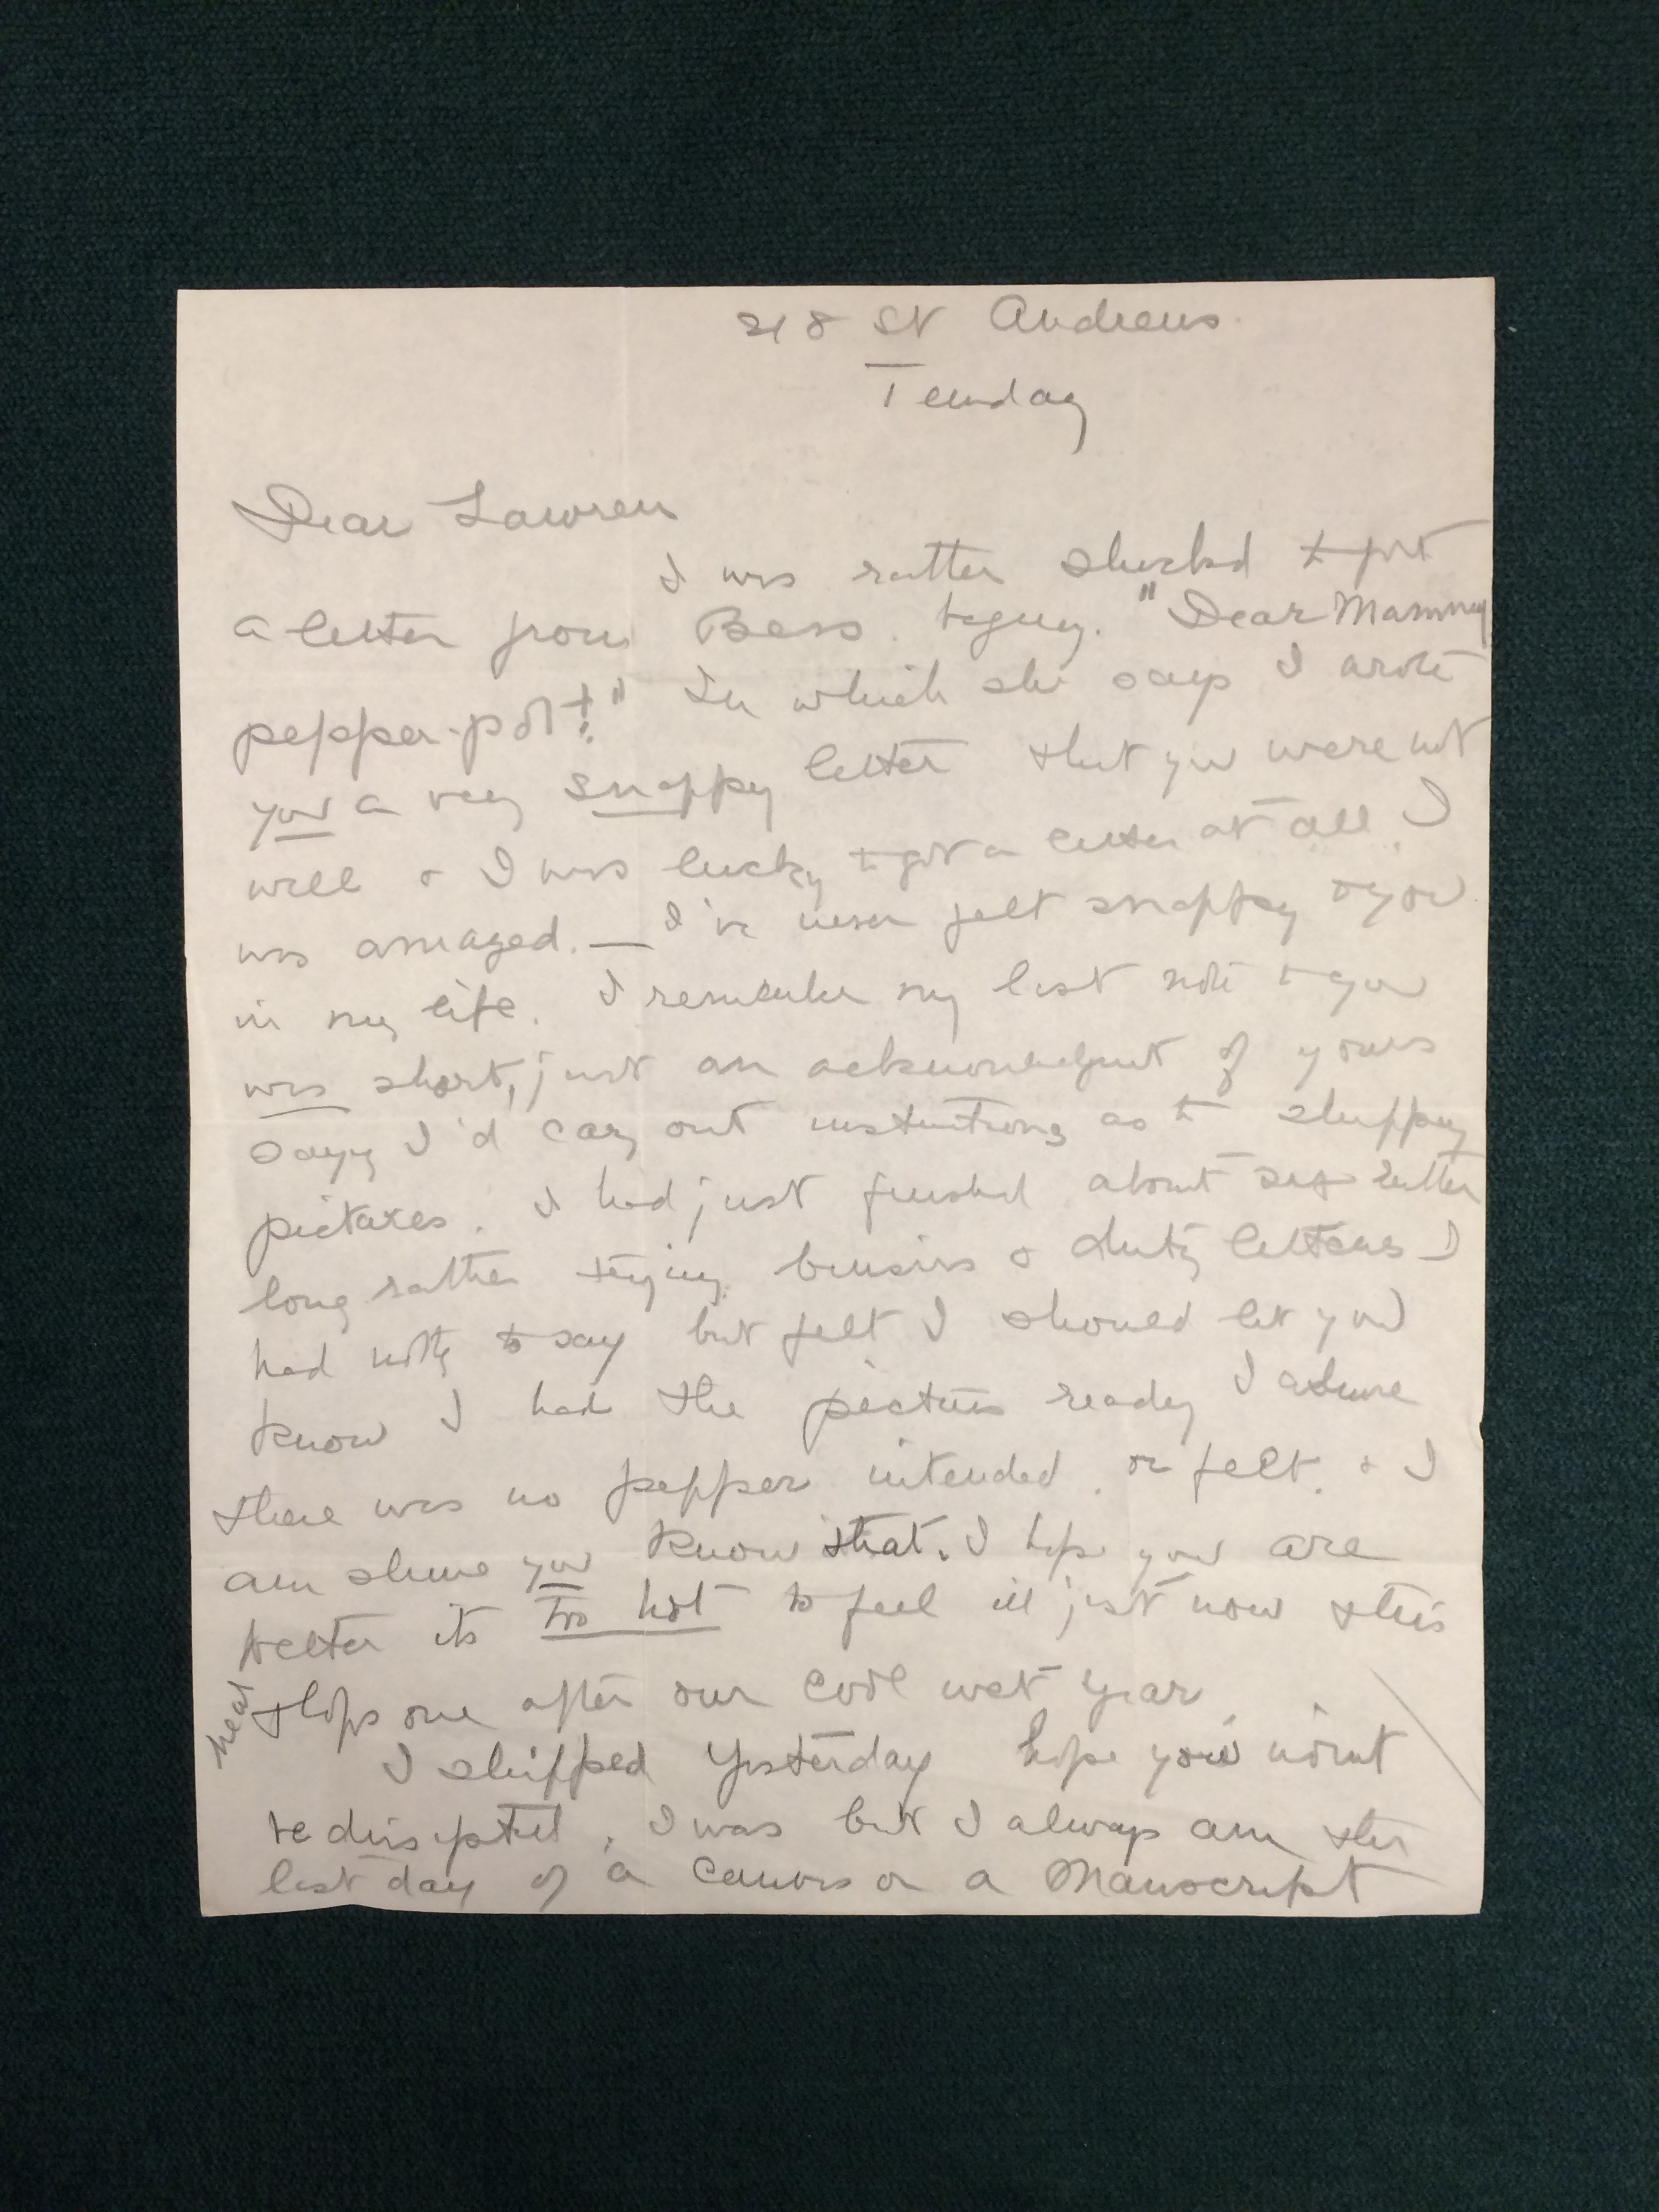 218 St Andrews
Tuesday
Dear Lawren
I was rather shocked to get
a letter from Bess. beging. "Dear Mammy
pepper-pot!" In which she says I wrote
you a very snappy letter that you were not
well & I was lucky to get a letter at all. I
was amazed. — I've never felt snappy to you
in my life. I remember my last note to you
was short, just an acknowledgment of yours
saying I'd carry out instructions as to shipping
pictures. I had just finished about six rather
long rather trying business & duty letters I
had nothg to say but felt I should let you
know I had the pictures ready I ashure
there was no pepper intended. or felt. & I
am shure you know that. I hope you are
better its too hot to feel ill just now this
heat
slops one after our cool wet year
I shipped yesterday hope you wont
be disapted. I was but I always am the
last day of a canvas or a Manuscript